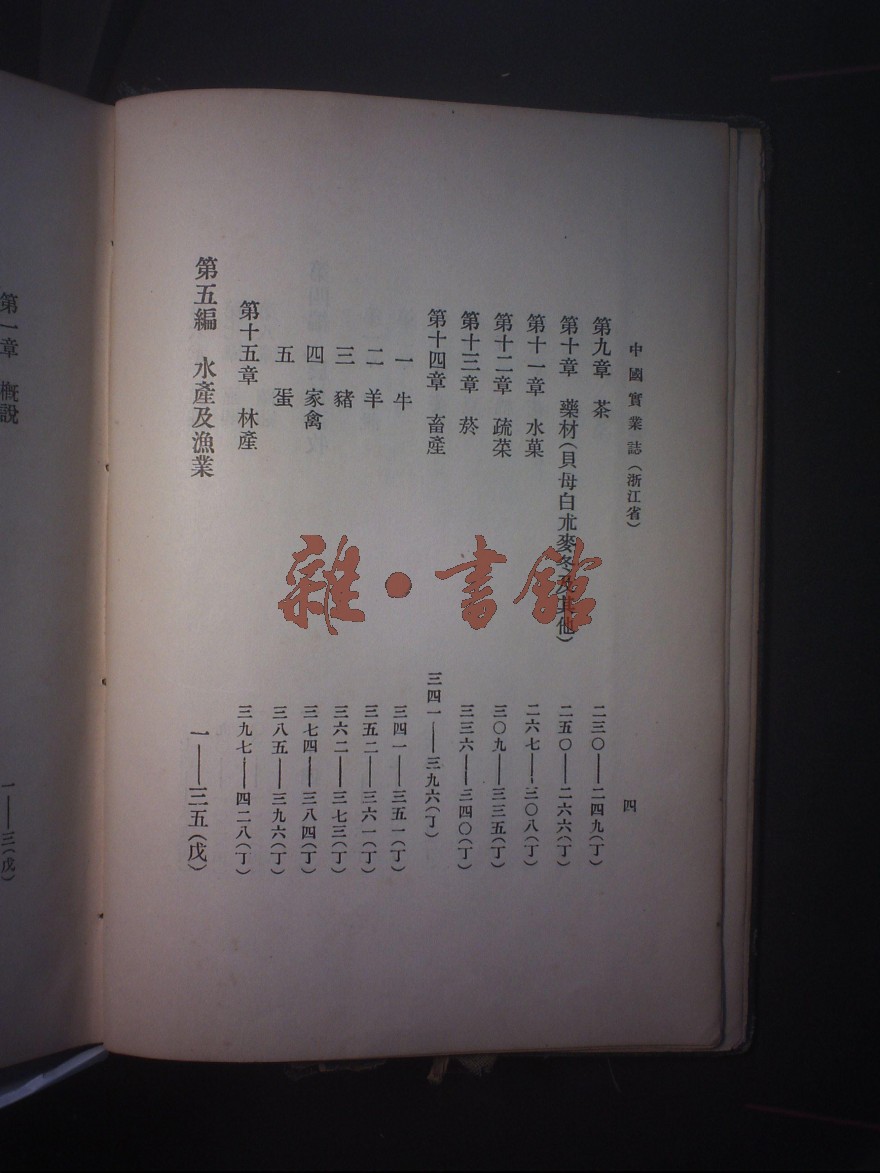 中國實業誌（浙江省）
四
第九章　茶　二三〇——二四九（丁）
第十章　藥材（貝母白朮麥冬及其他）　二五〇——二六六（丁）
第十一章　水菓　二六七——三〇八（丁）
第十二章　蔬菜　三〇九——三三五（丁）
第十三章　菸　三三六——三四〇（丁）
第十四章　畜產　三四一——三九六（丁）
一　牛　三四一——三五一（丁）
二　羊　三五二——三六一（丁）
三　豬　三六二——三七三（丁）
四　家禽　三七四——三八四（丁）
五　蛋　三八五——三九六（丁）
第十五章　林產　三九七——四二八（丁）
第五編　水產及漁業　一——三五（戊）
第一章　概說　一——三（戊）
雜·書館